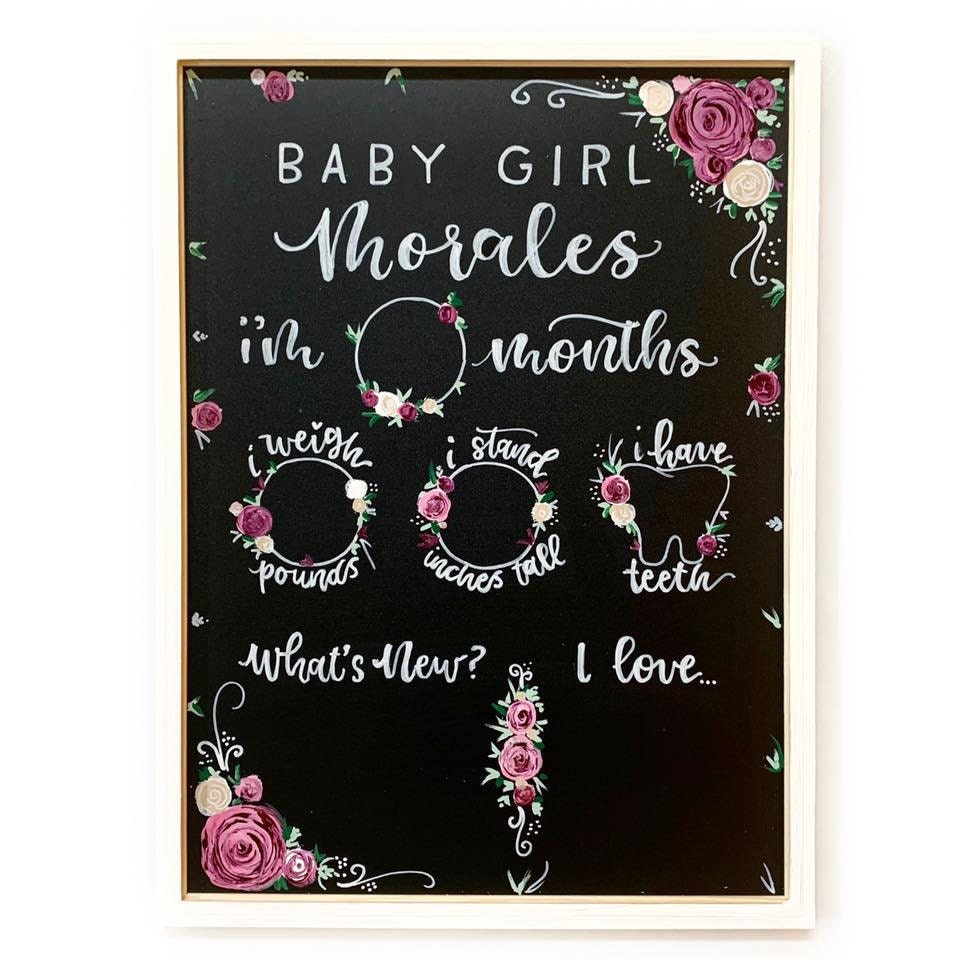 BABY GIRL
Morales
i'm months
i weigh i stand i have
pounds inches tall teeth
What's New? I love...